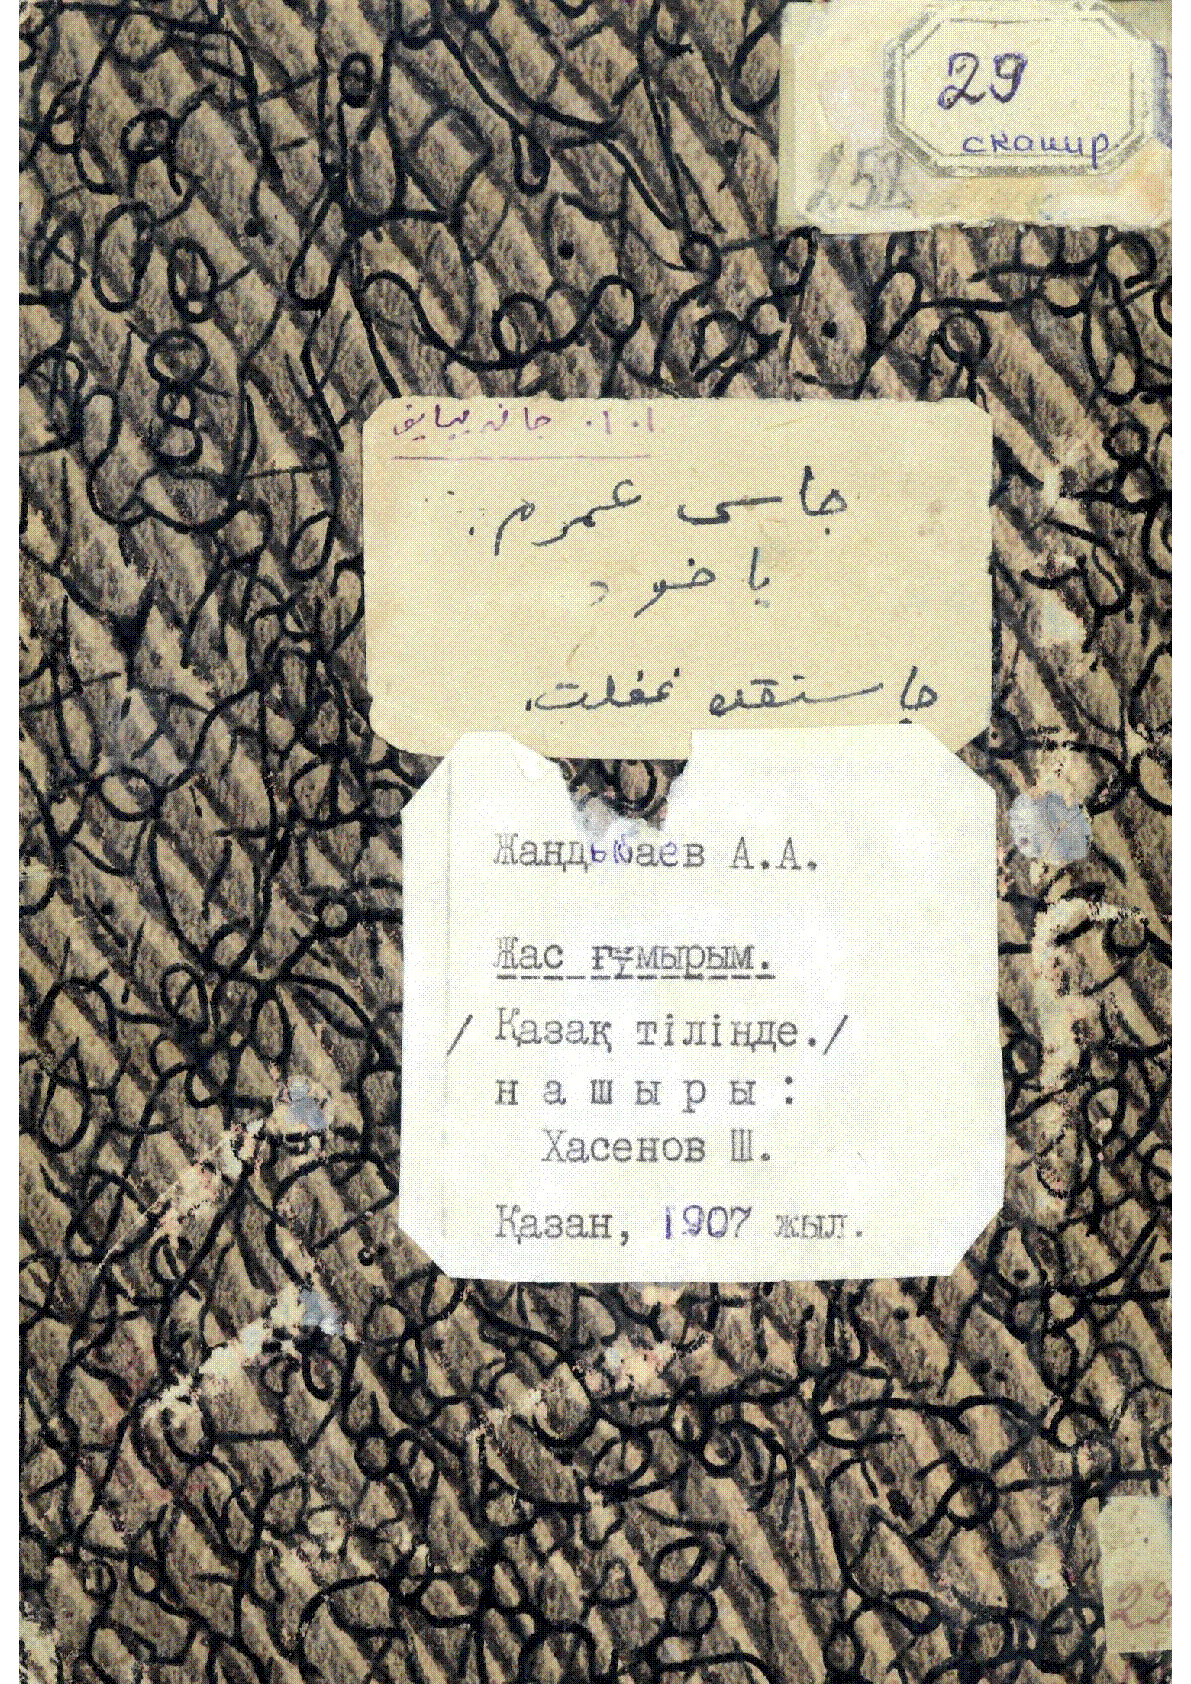 29
сканир.
252
ا. ا. جانديبايف
جاسى عمرم.
ياخود
جاستقده غفلت.
Жандыбаев А.А.
Жас ғұмырым.
/ Қазақ тілінде./
н а ш ы р ы :
Хасенов Ш.
Қазан, 1907 жыл.
29